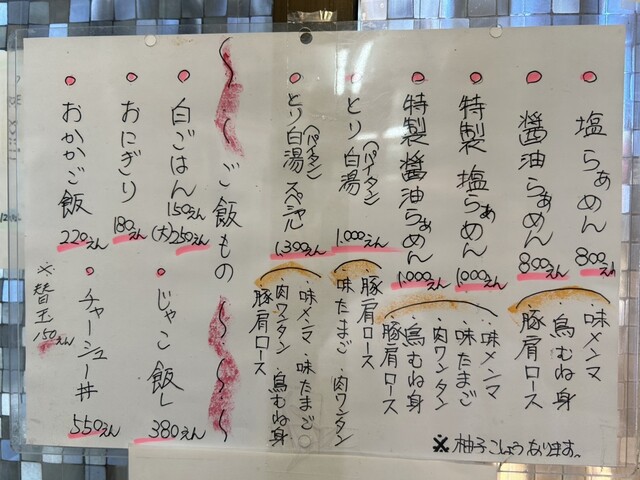 塩らぁめん 800えん
醤油らぁめん 800えん
・味メンマ
・鳥むね身
・豚肩ロース
特製塩らぁめん 1,000えん
特製醤油らぁめん 1,000えん
・味メンマ
・味たまご
・肉ワンタン
・鳥むね身
・豚肩ロース
とり白湯(パイタン) 1,000えん
・豚肩ロース
・味たまご ・肉ワンタン
とり白湯(パイタン)スペシャル 1,300えん
・味メンマ ・味たまご
・肉ワンタン ・鳥むね身
・豚肩ロース
※柚子こしょうあります。
ご飯もの
白ごはん 150えん
(大)250えん
おにぎり 180えん
おかかご飯 220えん
じゃこ飯し 380えん
チャーシュー丼 550えん
※替玉150えん